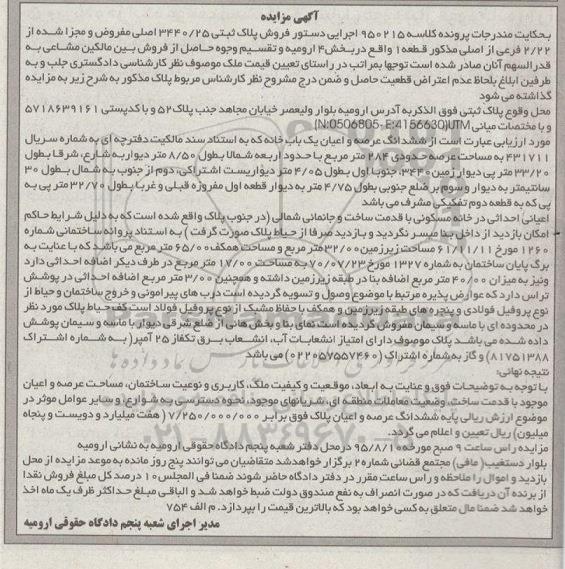 آگهی مزایده
بحکایت مندرجات پرونده کلاسه ۹۵۰۲۱۵ اجرایی دستور فروش پلاک ثبتی ۳۴۴۰/۲۵ اصلی مفروض و مجزا شده از
۲/۲۲ فرعی از اصلی مذکور قطعه۱ واقع دربخش۴ ارومیه و تقسیم وجوه حاصل از فروش بین مالکین مشاعی به
قدرالسهم آنان صادر شده است توجها بمراتب در راستای تعیین قیمت ملک موصوف نظر کارشناسی دادگستری جلب و به
طرفین ابلاغ بلحاظ عدم اعتراض قطعیت حاصل و ضمن درج مشروح نظر کارشناس مربوط پلاک مذکور به شرح زیر به مزایده
گذاشته می شود
محل وقوع پلاک ثبتی فوق الذکربه آدرس ارومیه بلوار ولیعصر خیابان مجاهد جنب پلاک۵۲ و با کدپستی ۵۷۱۸۶۳۹۱۶۱
و با مختصات میانی UTM(N:0506805- E:4156630)
مورد ارزیابی عبارت است از ششدانگ عرصه و اعیان یک باب خانه که به استناد سند مالکیت دفترچه ای به شماره سریال
۴۳۱۷۱۱ به مساحت عرصه حدودی ۲۸۴ متر مربع با حدود اربعه شمالا بطول ۸/۵۰ متر دیواربه شارع، شرقا بطول
۳۳/۲۰ متر پی دیوار زمین ۳۴۴۰، جنوبا اول بطول ۴/۰۵ متر دیواریست اشتراکی، دوم از جنوب به شمال بطول ۳۰
سانتیمتر به دیوار و سوم بر ضلع جنوبی بطول ۴/۷۵ متر به دیوار قطعه اول مفروزه قبلی و غربا بطول ۳۲/۷۰ متر پی به
پی که به قطعه دوم تفکیکی مشرف می باشد
اعیانی احداثی در خانه مسکونی با قدمت ساخت و جانمائی شمالی (در جنوب پلاک واقع شده است که به دلیل شرایط حاکم
امکان بازدید از داخل بنا میسر نگردید و بازدید صرفا از حیاط پلاک صورت گرفت ) به استناد پروانه ساختمانی شماره
۱۲۶۰ مورخ ۶۱/۱۱/۱۱ مساحت زیرزمین۳۲/۰۰متر مربع و مساحت همکف۶۵/۰۰ متر مربع می باشد که با عنایت به
برگ پایان ساختمان به شماره ۱۳۲۷ مورخ ۷۰/۰۷/۲۳ به مساحت ۱۷/۰۰ متر مربع در طرف دیگر اضافه احداثی دارد
ونیز به میزان ۴۰/۰۰ متر مربع اضافه بنا در طبقه زیرزمین داشته و همچنین ۳/۰۰ متر مربع اضافه احداثی در پوشش
تراس دارد که عوارض پذیره مرتبط با موضوع وصول و تسویه گردیده است درب های پیرامونی و خروج ساختمان و حیاط از
نوع پروفیل فولادی و پنجره های طبقه زیرزمین و همکف با حفاظ مشبک از نوع پروفیل فولاد است کف حیاط پلاک مورد نظر
در محدوده ای با ماسه و سیمان مفروش گردیده است نمای بنا و بخش هانی از ضلع شرقی دیوار با ماسه و سیمان پوشش
داده شده می باشد پلاک موصوف دارای امتیاز انشعابات آب، انشعاب برق تکفاز ۲۵ آمپر( به شماره اشتراک
۸۱۷۵۱۳۸۸) و گاز به‌شماره اشتراک (۰۲۲۰۵۷۵۵۷۴۶۰) می باشد
نتیجه نهائی:
با توجه به توضیحات فوق و عنایت به ابعاد، موقعیت و کیفیت ملک، کاربری و نوعیت ساختمان، مساحت عرصه و اعیان
موجود با قدمت ساخت، وضعیت معاملات منطقه ای، شریانهای موجود، نحوه دسترسی به شوارع، و سایر عوامل موثر در
موضوع ارزش ریالی پایه ششدانگ عرصه و اعیان پلاک فوق برابر ۷/۲۵۰/۰۰۰/۰۰۰ ( هفت میلیارد و دویست و پنجاه
میلیون) ریال تعیین و اعلام می گردد.
مزایده راس ساعت ۹ صبح مورخه ۹۵/۸/۱۰ درمحل دفتر شعبه پنجم دادگاه حقوقی ارومیه به نشانی ارومیه
بلوار دستغیب( مافی) مجتمع قضائی شماره۲ برگزار خواهدشد متقاضیان می توانند پنج روز مانده به موعد مزایده از محل
بازدید و اموال را ملاحظه و راس ساعت مقرر در دفتر دادگاه حاضر شوند ضمنا فی المجلس ۱۰ درصد کل مبلغ فروش نقدا
از برنده آن دریافت که در صورت انصراف به نفع صندوق دولت ضبط خواهد شد و الباقی مبلغ حداکثر ظرف یک ماه اخذ
خواهد شد ضمنا مال متعلق به کسی خواهد بود که بالاترین قیمت را بپردازد. م الف ۷۵۴
مدیر اجرای شعبه پنجم دادگاه حقوقی ارومیه